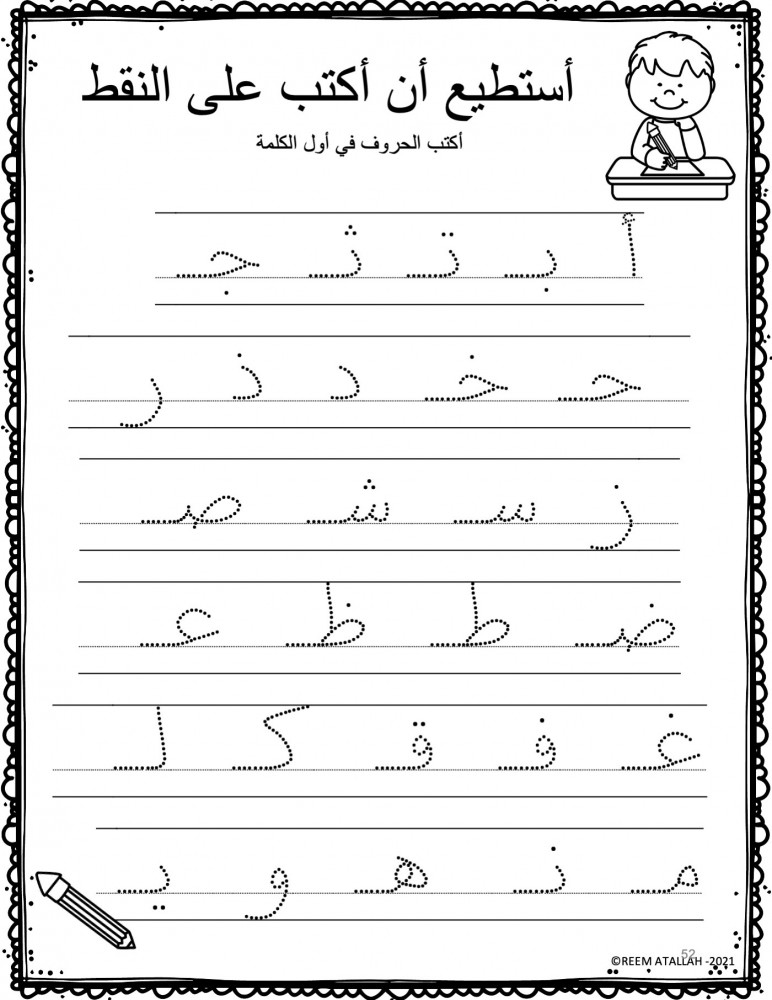 أستطيع أن أكتب على النقط
أكتب الحروف في أول الكلمة
أ بـ تـ ثـ جـ
حـ خـ د ذ ر
ز سـ شـ صـ
ضـ طـ ظـ عـ
غـ فـ قـ كـ لـ
مـ نـ هـ و يـ
52
©REEM ATALLAH -2021